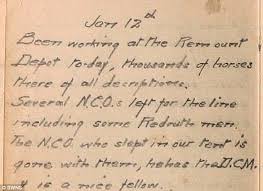 Jan 12th
Been working at the Remount
Depot to-day, thousands of horses
there of all descriptions.
Several N.C.O.s left for the line
including some Redruth men.
The N.C.O. who slept in our tent is
gone with them, he has the D.C.M.
is a nice fellow.